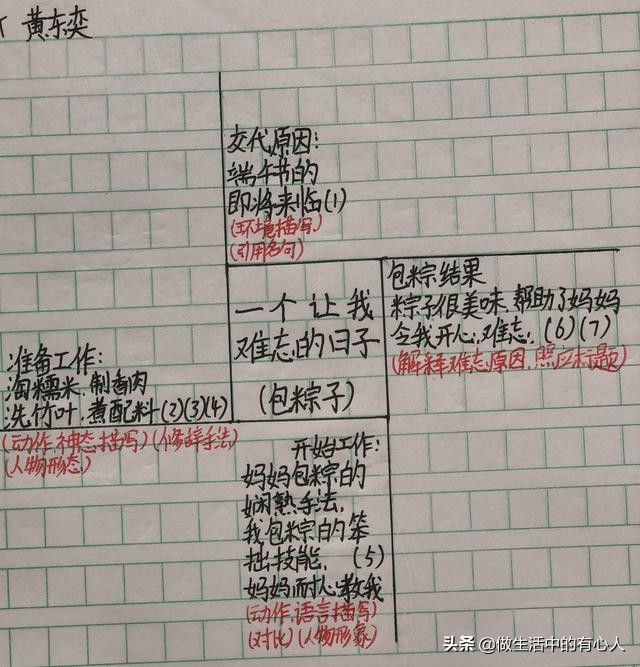 黄东奕
交代原因:
端午节的
即将来临(1)
(环境描写)
(引用名句)
一个让我
难忘的日子
(包粽子)
包粽结果
粽子很美味,帮助了妈妈
令我开心,难忘,(6)(7)
(解释难忘原因,照应标题)
准备工作:
淘糯米,制香肉
洗竹叶,煮配料(2)(3)(4)
(动作,神态描写)(修辞手法)
(人物形态)
开始工作:
妈妈包粽的
娴熟手法,
我包粽的笨
拙技能,(5)
妈妈耐心教我
(动作,语言描写)
(对比)(人物形象)
头条 @做生活中的有心人